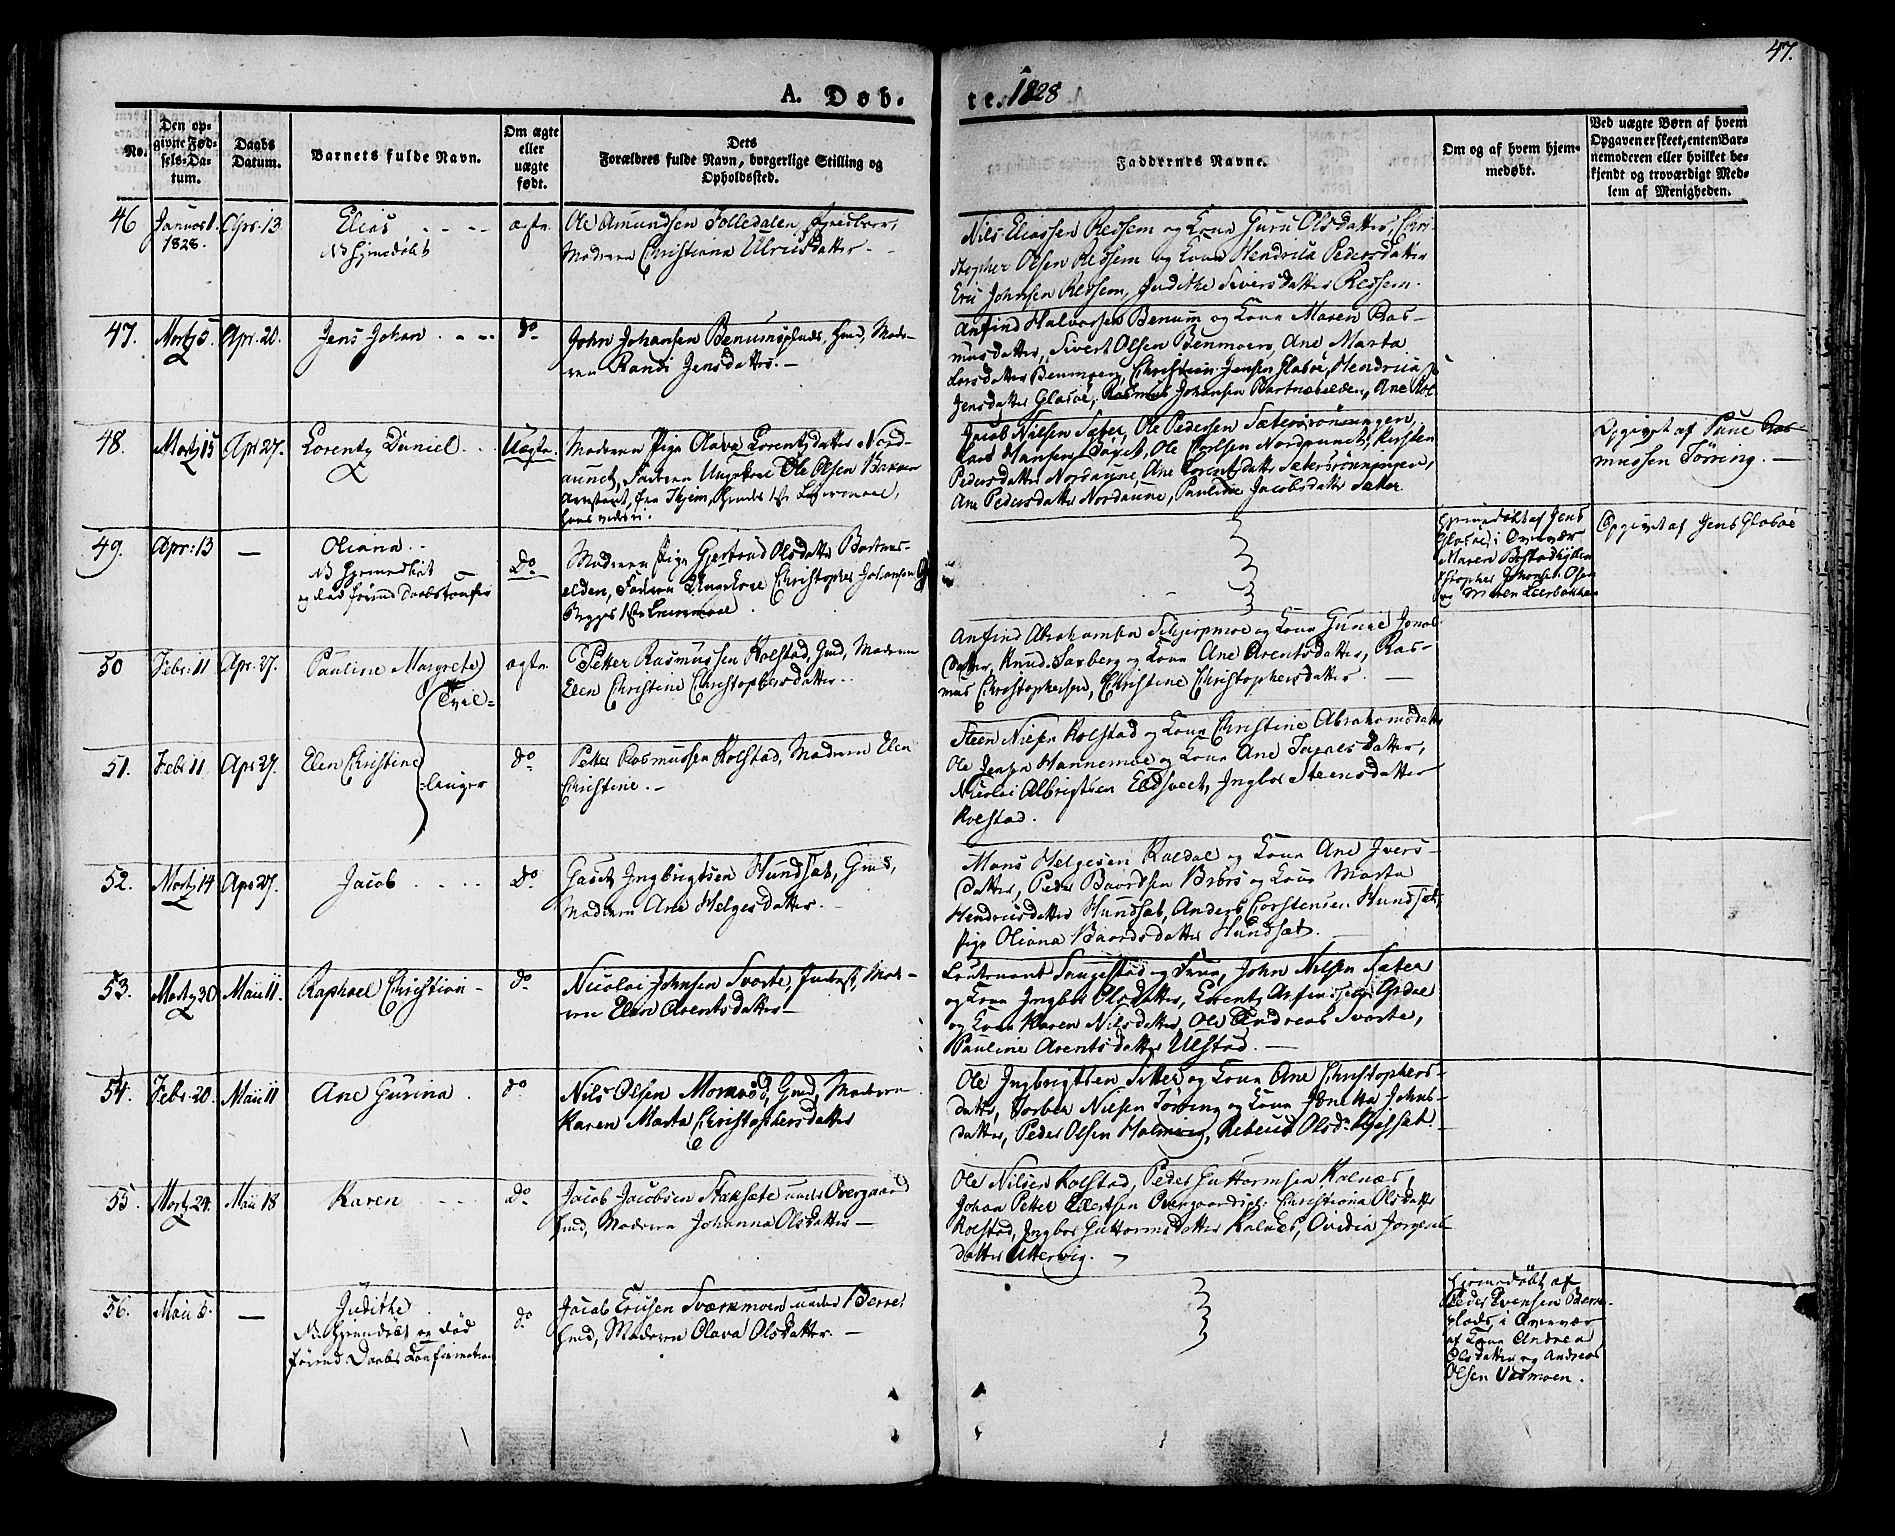 47.
A. Døb-
te. 1828
No.
Den op-
givne Fød-
sels-Da-
tum.
Daabs
Datum.
Barnets fulde Navn.
Om ægte
eller
uægte
født.
Dets
Forældres fulde Navn, borgerlige Stilling og
Opholdssted.
Faddernes Navne.
Om og af hvem hjem-
medøbt.
Ved uægte Børn af hvem
Opgaven er skeet, enten Bar-
nemoderen eller hvilket be-
kjendt og troværdigt Med-
lem af Menigheden.
46
1828.
Apr. 13
Elias
NB Hjemedøbt
ægte
Ole Amundsen Tolledalen
Moderen Christiana Ulricsdatter
Nils Eliassen Ressem og Kone Guru Olsdatter, Chri-
stopher Olsen Ressem og Kone Hendrica Pedersdatter
Eric Johnsen Ressem, Judithe Siversdatter Ressem.
47.
Martz 5
Apr. 20.
Jens Johan
do
John Johansen Benumsplads, Hmd, Mode-
ren Randi Jensdatter.
Anfind Halvorsen Benum og Kone Maren Ras-
musdatter, Sivert Olsen Benmoen, Ane Marta
Larsdatter Benmoen, Christian Jensen Glasøe, Hendrica
Jensdatter Glasøe, Rasmus Johansen Bartnæsælden, Ane
48.
Martz 15
Apr 27.
Lorentz Daniel
Uægte.
Moderen Pige Olava Lorentzdatter Nord-
aunet, Faderen Ungekarl Ole Olsen Bakken
hans
Jacob Nilsen Sæter, Ole Pedersen Sætersrønningen,
Ole Carlsen Nordaunet, Kirsten
Pedersdatter Nordaune, Ane Lorentzdatter Sætersrønningen,
Ane Pedersdatter Nordaune, Pauline Jacobsdatter Sæter
Opgivet af Pane Ras-
mussen Tørring.
49.
Apr: 13
Oliana
NB Hjemedøbt
og død førend Daabs
Do
Moderen Pige Gjertrud Olsdatter Bartnæs-
elden, Faderen Ungekarl Christopher Johansen
Hjemedøbt af Jens
Glasøe i Overvær
Maren
Opgivet af Jens Glasøe
50
Febr. 11
Apr. 27.
Pauline Margrete
Tvil-
ægte
Petter Rasmussen Kolstad, Hmd, Moderen
Elen Christine Christophersdatter
Anfind Abrahamsen Schjerpmoe og Kone Guruë Jonas-
datter, Knud Saxberg og Kone Ane Arentsdatter, Ras-
mus Christophersen, Christine Christophersdatter.
51.
Febr 11
Apr 27.
Elen Christine
linger
do
Petter Rasmussen Kolstad, Moderen Elen
Christine.
Steen Nilsen Kolstad og Kone Christine Abrahamsdatter
Ole Jensen Hannemoe og Kone Ane
Nicolai Albrigtsen Eldsveet, Ingbor Steensdatter
Kolstad.
52.
Martz 14
Apr 27.
Jacob
do
Ingbrigtsen Hundsæt, Gmd,
Moderen Ane Helgesdatter.
Mons Helgesen Kaldal og Kone Ane Ivers-
datter, Peder Baardsen og Kone Marta
Hendricsdatter Hundsæt, Anders Torstensen Hundsæt,
Pige Oliana Baardsdatter Hundsæt.
53.
Martz 30
Maii 11.
Raphael Christian
do
Nicolai Johnsen Svarte, Inderst, Mode-
ren Elen Arentsdatter
Leutenant Saugestad og Frue, John Nilsen Sæter
og Kone Ingbor Olsdatter, Lorentz
og Kone Karen Nilsdatter, Ole Andreas Svarte,
Pauline Arentsdatter Ulstad.
54.
Febr. 20.
Maii 11
Ane Gurina
do
Nils Olsen, Gmd, Moderen
Karen Marta Christophersdatter
Ole Ingbrigtsen Sæter og Kone Ane Christophers-
datter, Torber Nilsen Tørring og Kone Jonetta Johns-
datter, Peder Olsen Holmvey, Rebecca Olsd. Kjelsæt.
55.
Martz 24.
Maii 18
Karen
do
Jacob Jacobsen Staksæte under Overgaard
Hmd, Moderen Johanna Olsdatter
Ole Nilsen Kolstad, Peder Guttormsen Kalnæs,
Johan Petter Overgaard Christiana Olsdatter
Kolstad, Ingbor Guttormsdatter Kalnæs, Ovidia Jørgens-
datter Uttervig.
56.
Maii 5.
Judithe
NB. Hjemedøbt og død
førend Daabs Confirmation
do
Jacob Ericsen Sværmoen under
Hmd, Moderen Olava Olsdatter.
Hjemedøbt af
Peder Evensen
plads, i Overvær
af Kone Andrea
Olsdatter og Andreas
Olsen Vaimoen.